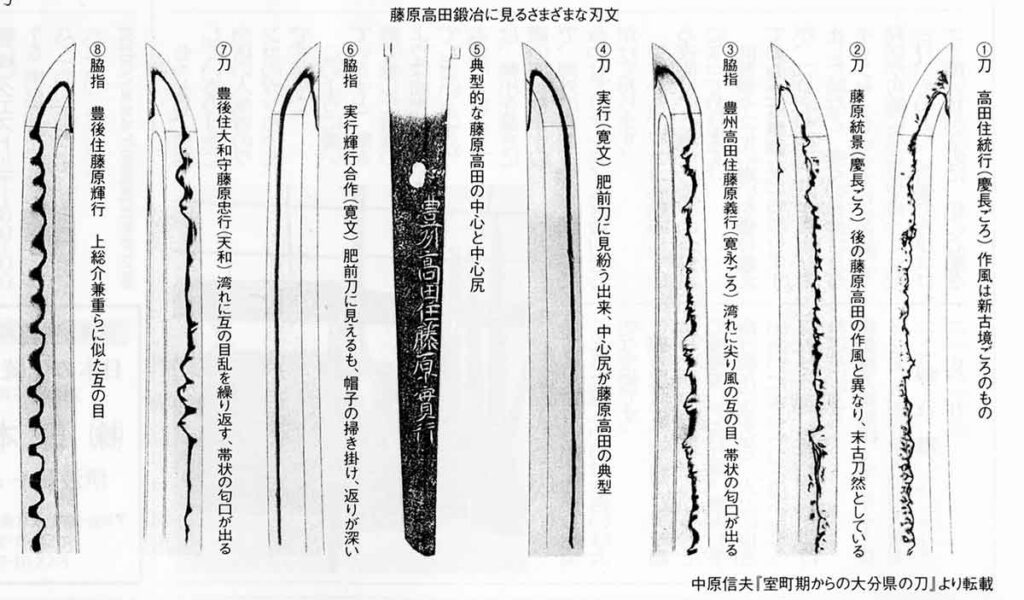 藤原高田鍛冶に見るさまざまな刃文
①刀　高田住統行（慶長ごろ）作風は新古境ごろのもの
②刀　藤原統景（慶長ごろ）後の藤原高田の作風と異なり、末古刀然としている
③脇指　豊州高田住藤原義行（寛永ごろ）湾れに尖り風の互の目、帯状の匂口が出る
④刀　実行（寛文）肥前刀に見紛う出来、中心尻が藤原高田の典型
⑤典型的な藤原高田の中心と中心尻
豊州高田住藤原實行
⑥脇指　実行輝行合作（寛文）肥前刀に見えるも、帽子の掃き掛け、返りが深い
⑦刀　豊後住大和守藤原忠行（天和）湾れに互の目乱を繰り返す、帯状の匂口が出る
⑧脇指　豊後住藤原輝行　上総介兼重らに似た互の目
中原信夫『室町期からの大分県の刀』より転載